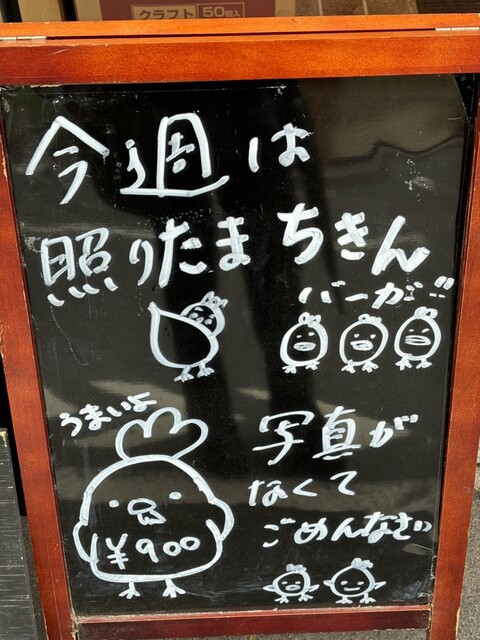 クラフト 50個入
今週は
照りたま ちきん
バーガー!!
うまいよ
¥900
写真が
なくて
ごめんなさい